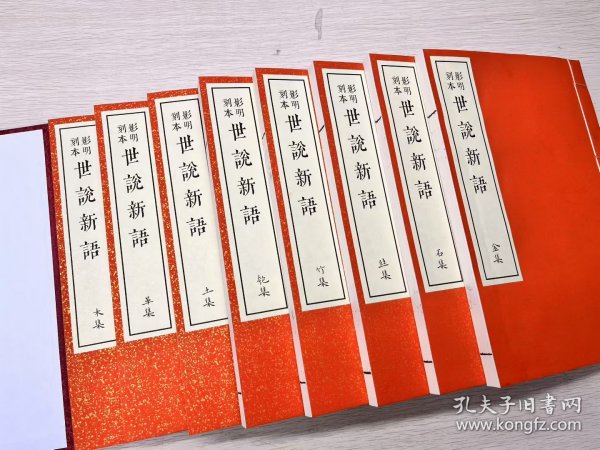 影明
刻本
世說新語
金集
影明
刻本
世說新語
石集
影明
刻本
世說新語
絲集
影明
刻本
世說新語
竹集
影明
刻本
世說新語
匏集
影明
刻本
世說新語
土集
影明
刻本
世說新語
革集
影明
刻本
世說新語
木集
孔夫子旧書网
www.kongfz.com